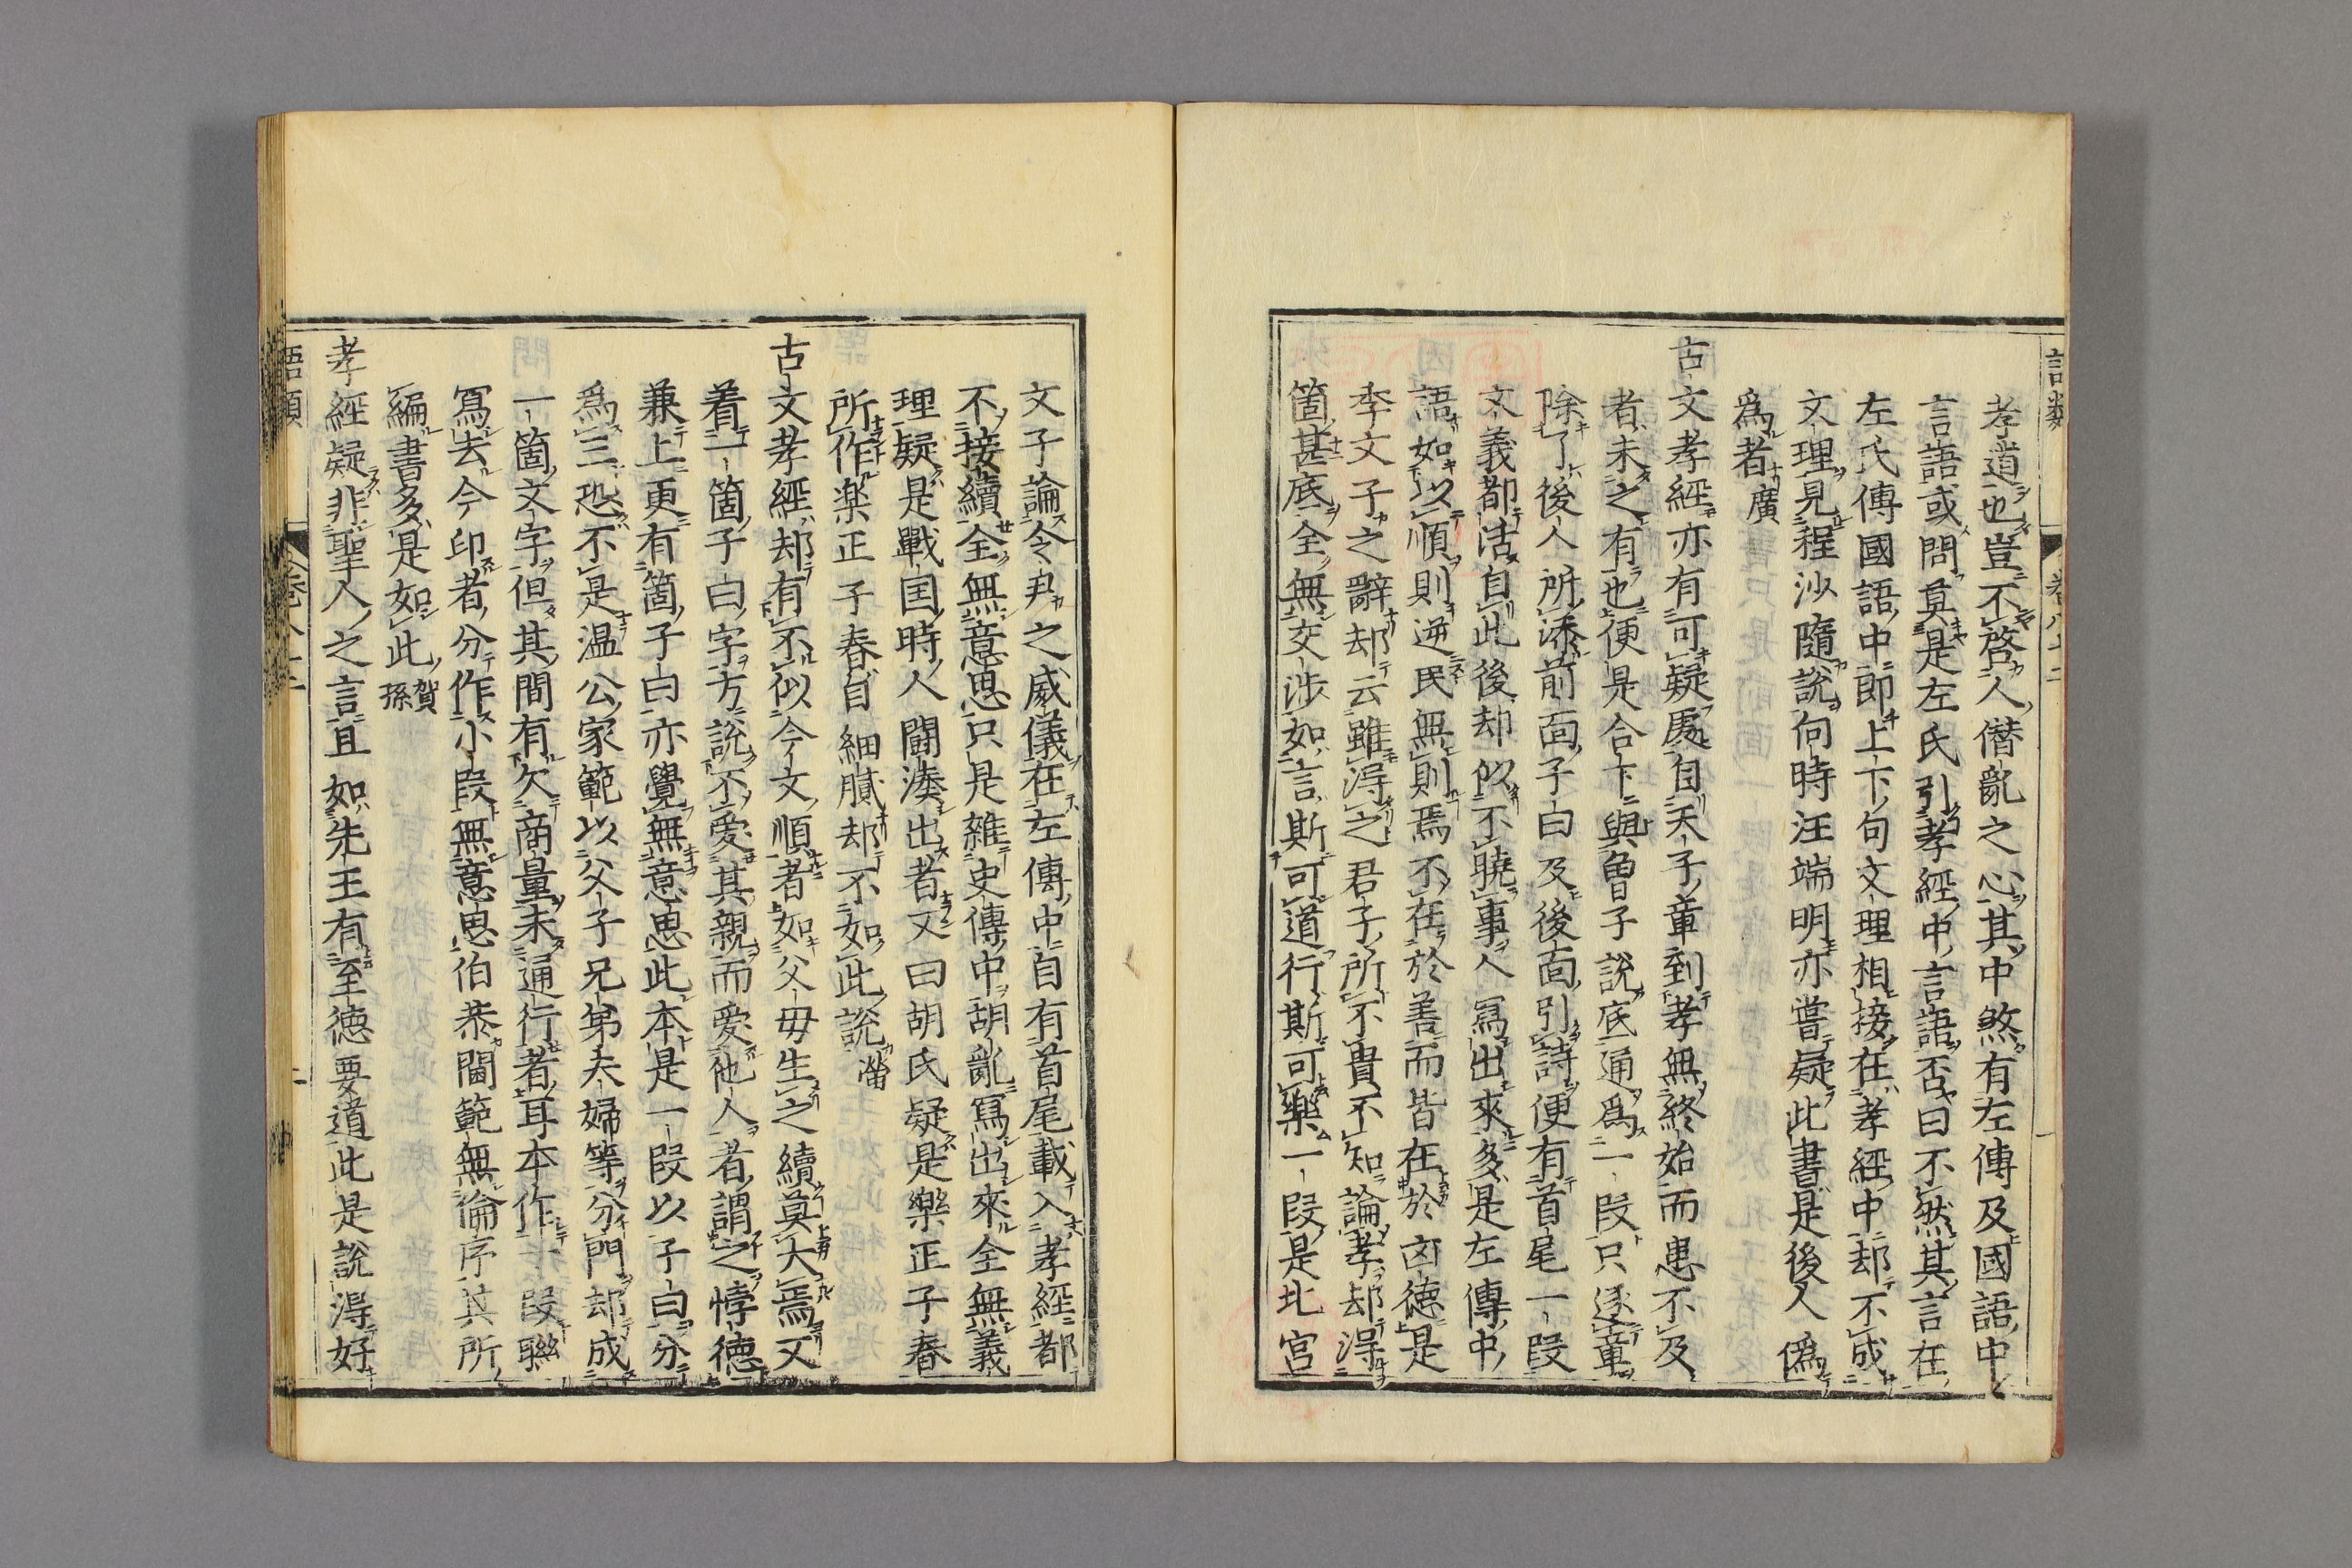 孝道也豈不啓人僭亂之心其中煞有左傳及國語中
言語或問莫是左氏引孝經中言語否曰不然其言在
左氏傳國語中即上下句文理相接在孝經中却不成
文理見程沙隨說向時汪端明亦嘗疑此書是後人僞
爲者廣
古文孝經亦有可疑處自天子章到孝無終始而患不及
者未之有也便是合下與曾子說底通爲一段只逐章
除了後人所添前面子曰及後面引詩便有首尾一段
文義都活自此後却似不曉事人寫出來多是左傳中
語如以順則逆民無則焉不在於善而皆在於凶德是
季文子之辭却云雖得之君子所不貴不知論孝却得
箇甚底全無交涉如言斯可道行斯可樂一段是北宮
文子論令尹之威儀在左傳中自有首尾載入孝經都
不接續全無意思只是雜史傳中胡亂寫出來全無義
理疑是戰国時人鬪湊出者又曰胡氏疑是樂正子春
所作楽正子春自細膩却不如此說𤲞
古文孝經却有不似今文順者如父母生之續莫大焉又
着一箇子曰字方說不愛其親而愛他人者謂之悖德
兼上更有箇子曰亦覺無意思此本是一段以子曰分
爲三恐不是温公家範以父子兄弟夫婦等分門却成
一箇文字但其間有欠商量未通行者耳本作一段聯
寫去今印者分作小段無意思伯恭閫範無倫序其所
編書多是如此賀孫
孝經疑非聖人之言且如先王有至德要道此是說得好
語類
卷八十二